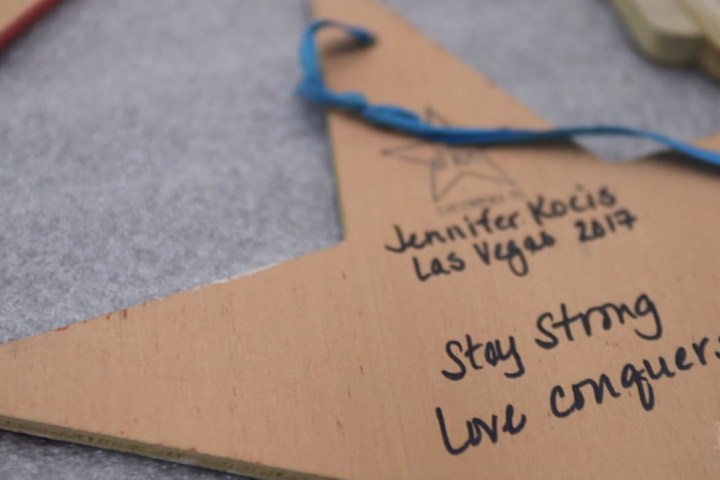 Jennifer Kocis
Las Vegas 2017
Stay Strong
Love conquers